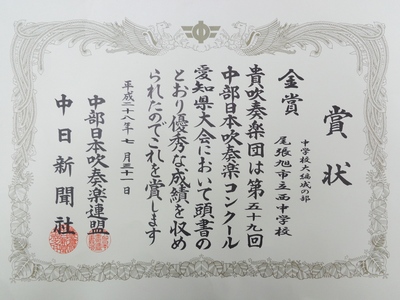 賞状
中学校大編成の部
金賞
尾張旭市立西中学校
貴吹奏楽団は第五十九回
中部日本吹奏楽コンクール
愛知県大会において頭書の
とおり優秀な成績を収め
られたのでこれを賞します
平成二十八年七月三十一日
中部日本吹奏楽連盟
中日新聞社